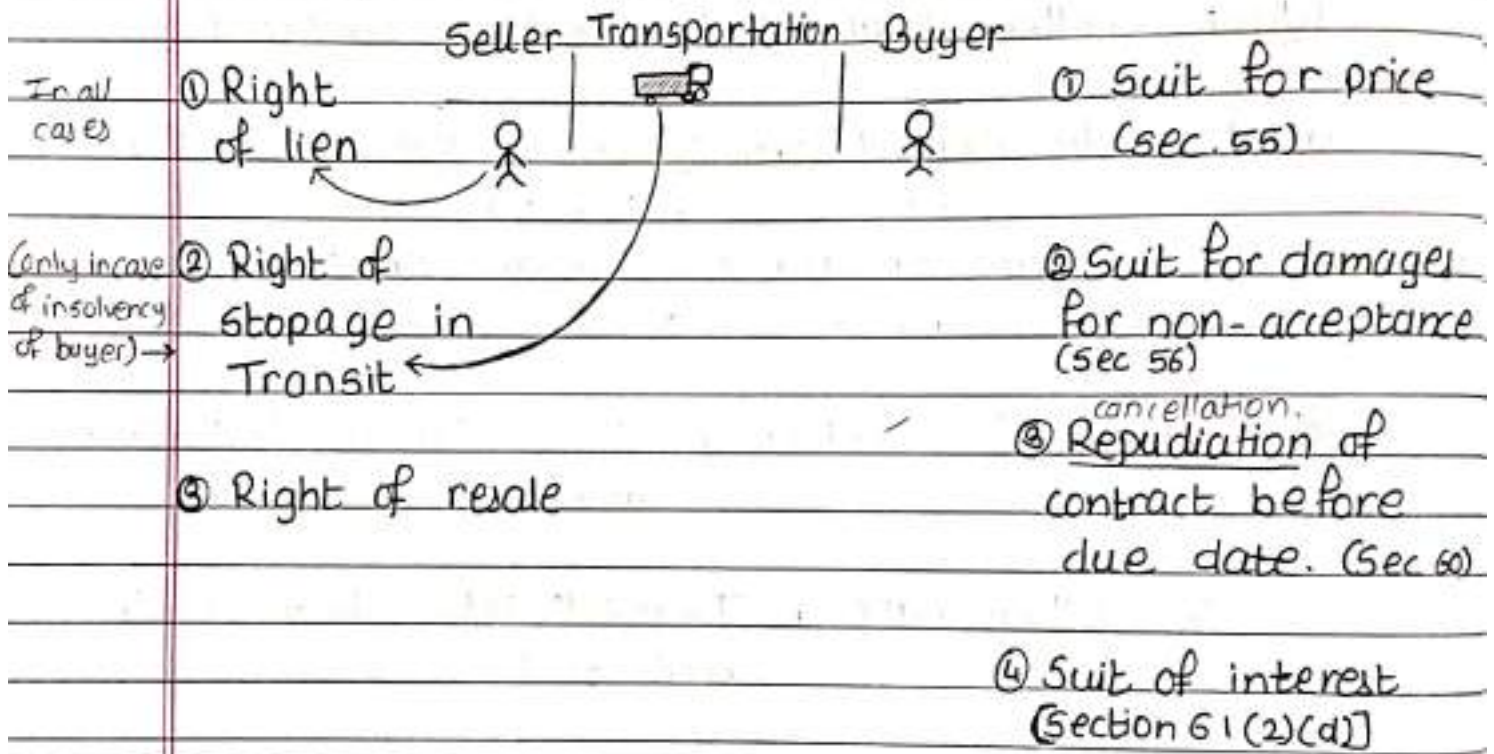 Seller Transportation Buyer
In all
cases
① Right
of lien
(only incase
of insolvency
of buyer)→
② Right of
stopage in
Transit
③ Right of resale
① Suit for price
(sec. 55)
② Suit for damages
for non-acceptance
(Sec 56)
cancellation.
③ Repudiation of
contract before
due date. (Sec 60)
④ Suit of interest
[Section 61(2)(d)]